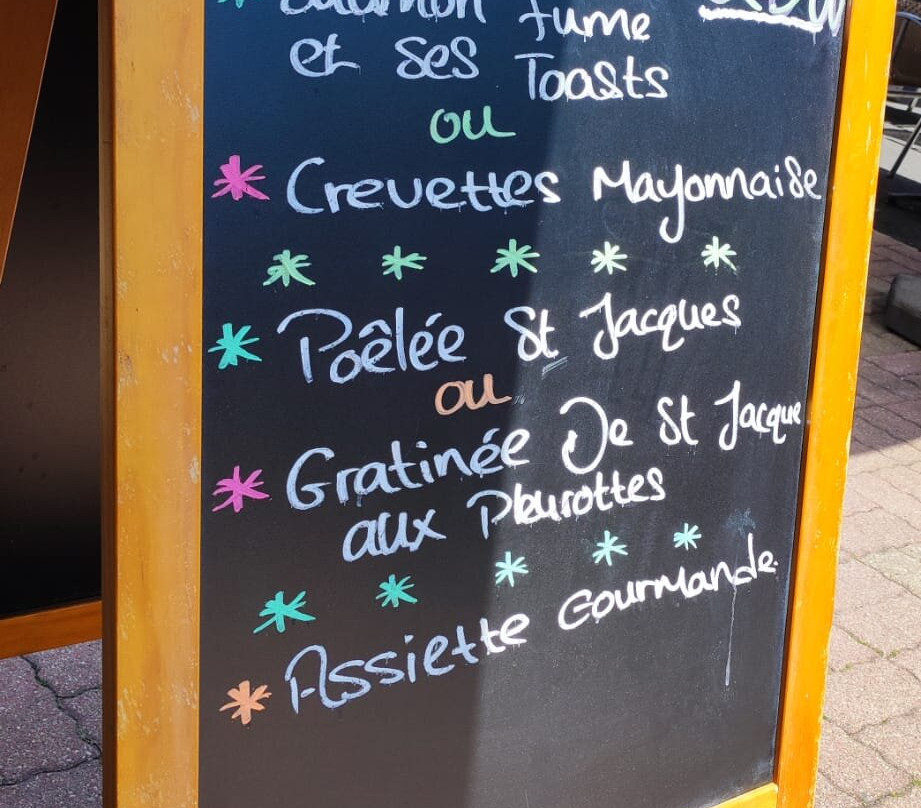 Saumon fumé
et ses Toasts
ou
* Crevettes Mayonnaise
* * * * *
* Poêlée St Jacques
ou
* Gratinée De St Jacque
aux Pleurottes
* * * * *
* Assiette Gourmande